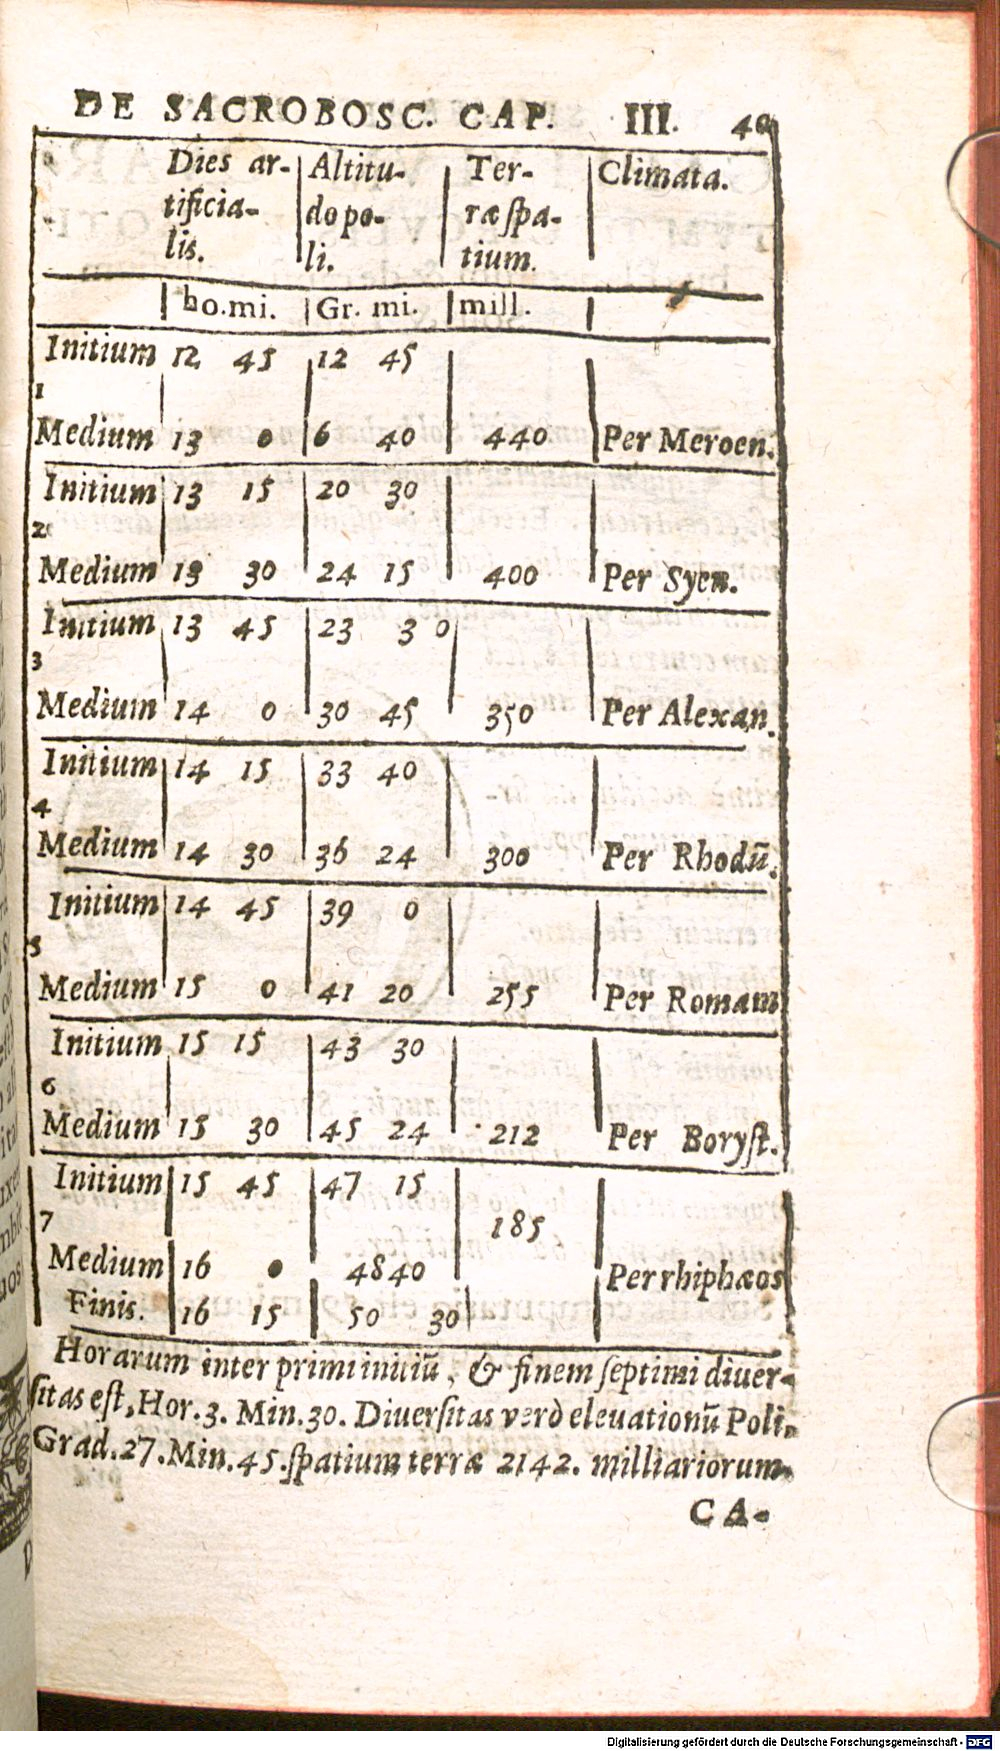 DE SACROBOSC. CAP. III. 40
Dies ar- Altitu- Ter- Climata.
tificia- do po- ræ ſpa-
lis. li. tium.
ho. mi. Gr. mi. mill.
Initium 12 45 12 45
1
Medium 13 0 6 40 440 Per Meroen.
Initium 13 15 20 30
2
Medium 13 30 24 15 400 Per Syen.
Initium 13 45 23 3 0
3
Medium 14 0 30 45 350 Per Alexan.
Initium 14 15 33 40
4
Medium 14 30 36 24 300 Per Rhodũ.
Initium 14 45 39 0
5
Medium 15 0 41 20 255 Per Romam
Initium 15 15 43 30
6
Medium 15 30 45 24 212 Per Boryſt.
Initium 15 45 47 15
7 185
Medium 16 0 48 40 Per rhiphæos
Finis. 16 15 50 30
Horarum inter primi initiũ, & finem ſeptimi diuer-
ſitas eſt, Hor. 3. Min. 30. Diuerſitas verò eleuationũ Poli,
Grad. 27. Min. 45. ſpatium terræ 2142. milliariorum.
CA-
Digitalisierung gefördert durch die Deutsche Forschungsgemeinschaft - DFG